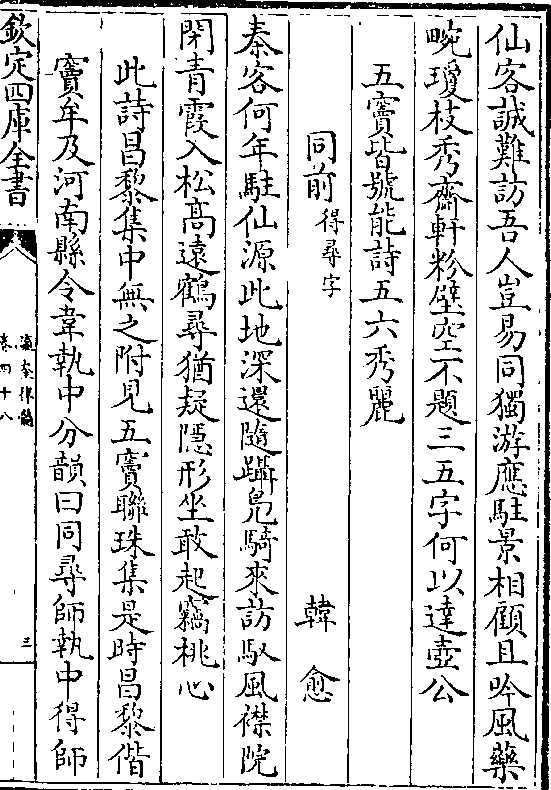 仙客誠難訪吾人豈易同獨游應駐景相顧且吟風藥
畹瓊枝秀齋軒粉壁空不題三五字何以達壺公
五竇皆號能詩五六秀麗
同前得尋字　韓愈
秦客何年駐仙源此地深還隨躡鳧騎來訪馭風襟院
閉青霞入松高遠鶴尋猶疑隱形坐敢起竊桃心
此詩昌黎集中無之附見五竇聯珠集是時昌黎偕
竇牟及河南縣令韋執中分韻曰同尋師執中得師
欽定四庫全書
瀛奎律髓
卷四十八
三